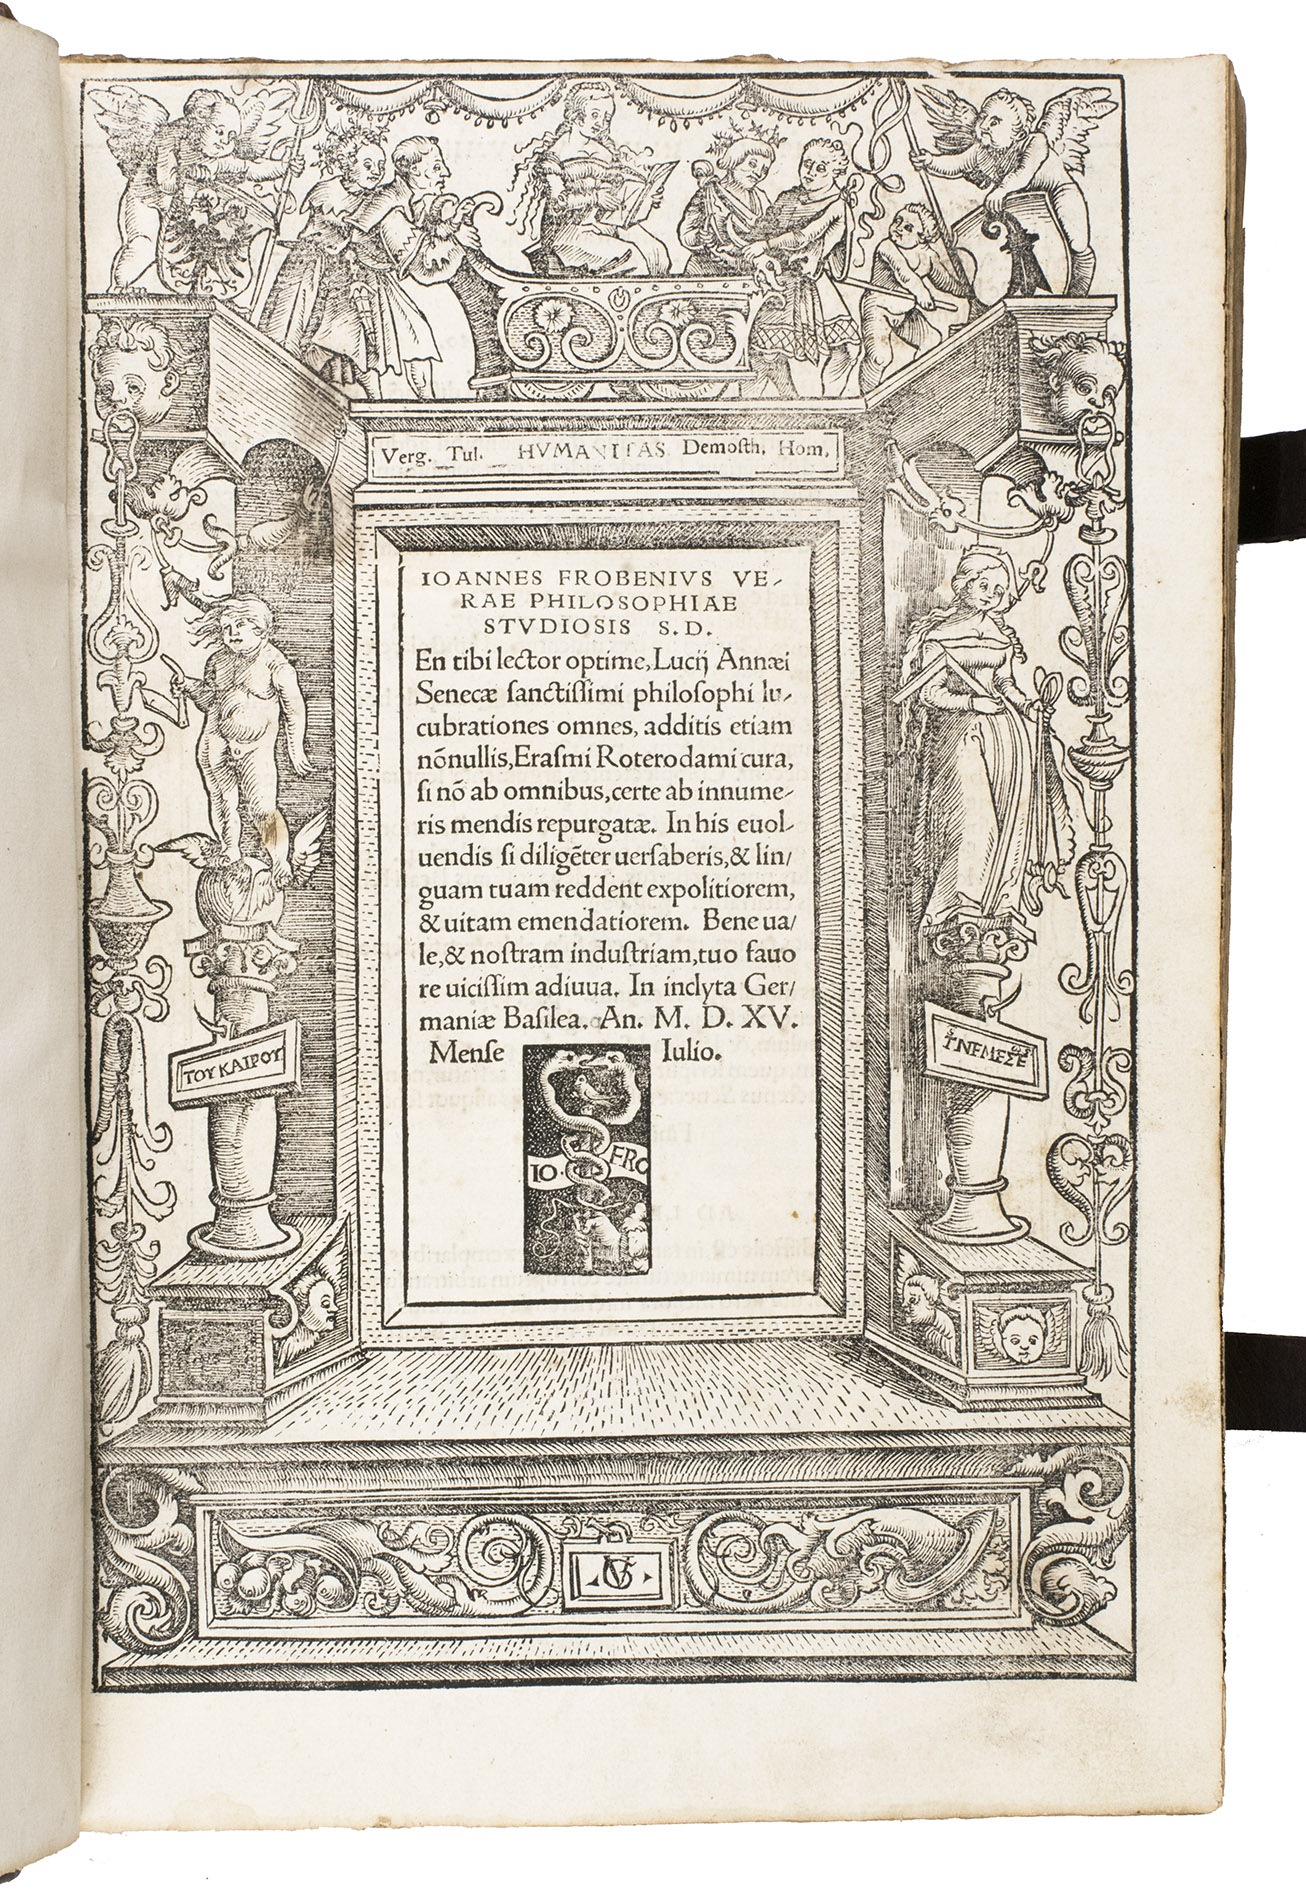 Verg. Tul. HVMANITAS Demosth. Hom.
IOANNES FROBENIVS VE-
RAE PHILOSOPHIAE
STVDIOSIS S.D.
En tibi lector optime, Lucij Annæi
Senecæ sanctissimi philosophi lu-
cubrationes omnes, additis etiam
nōnullis, Erasmi Roterodami cura,
si nō ab omnibus, certe ab innume-
ris mendis repurgatæ. In his euol-
uendis si diligēter uersaberis, & lin/
guam tuam reddent expolitiorem,
& uitam emendatiorem. Bene ua/
le, & nostram industriam, tuo fauo
re uicissim adiuua. In inclyta Ger/
maniæ Basilea. An. M. D. XV.
Mense Iulio.
ΤΟΥ ΚΑΙΡΟΥ
IO. FRO
VG